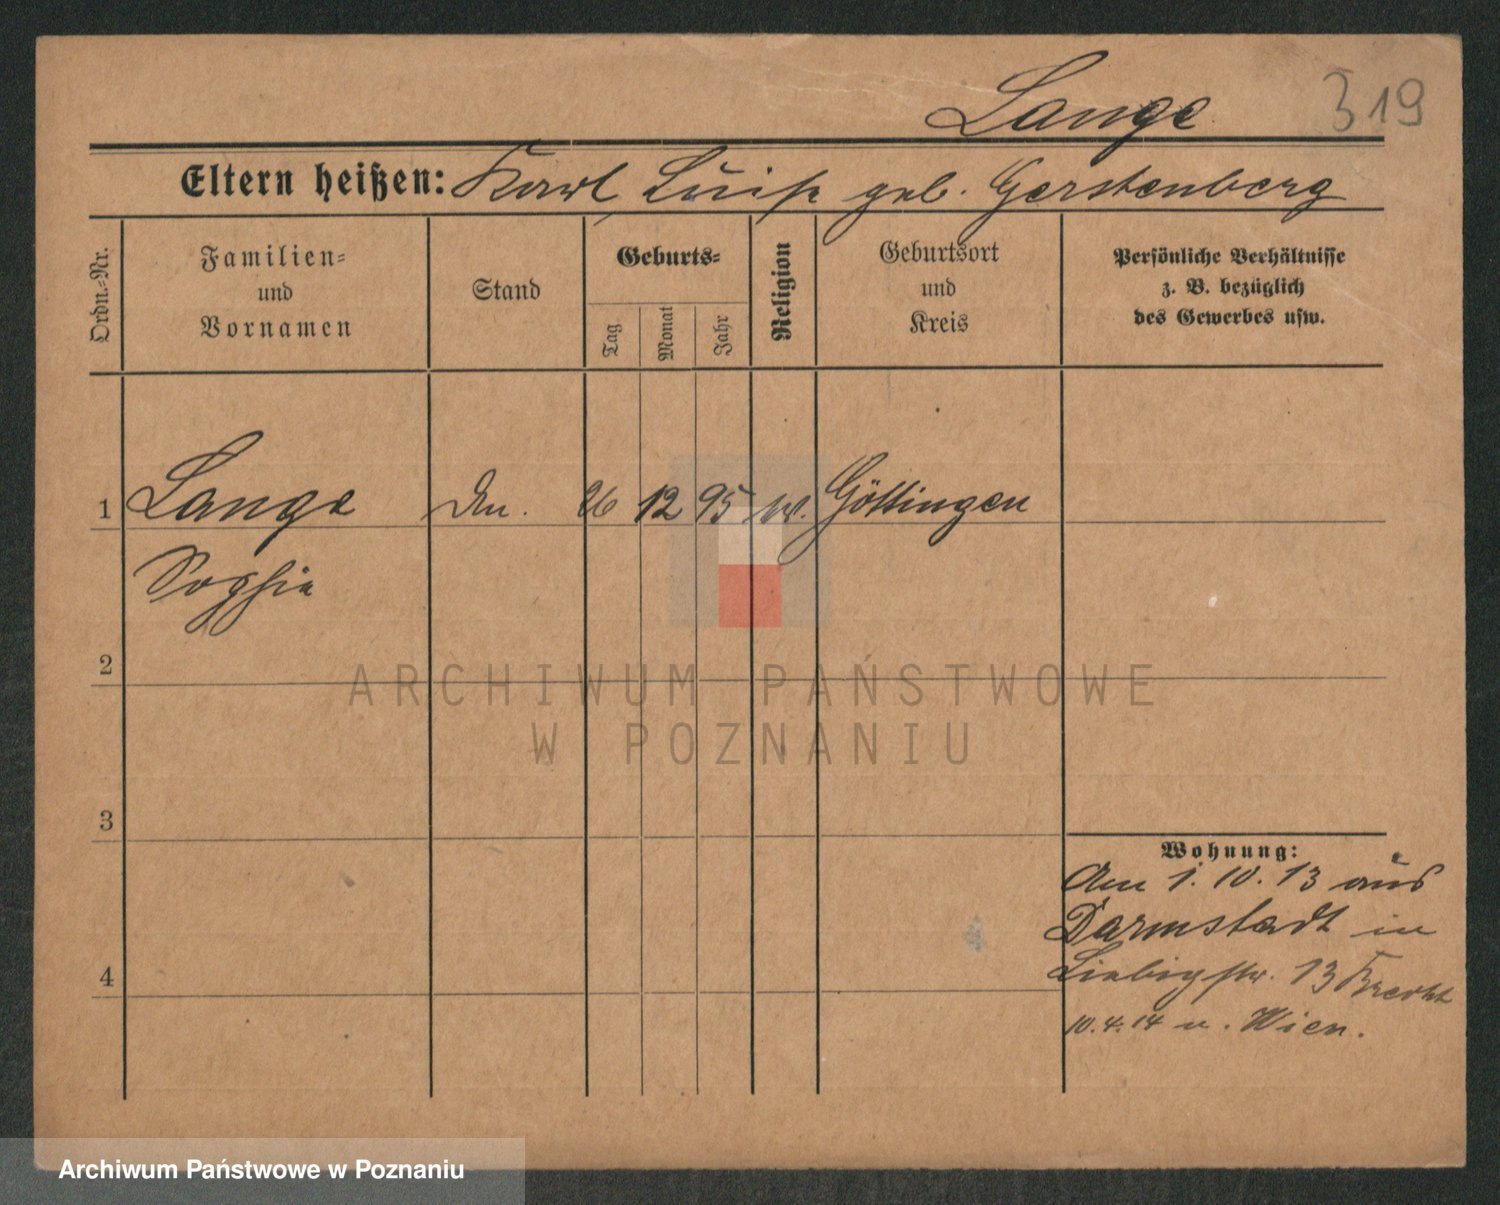 Lange 319
Eltern heißen: Karl Luise geb. Gerstenberg
Ordn.-Nr.
Familien-
und
Vornamen
Stand
Geburts-
Tag
Monat
Jahr
Religion
Geburtsort
und
Kreis
Persönliche Verhältnisse
z. B. bezüglich
des Gewerbes usw.
1 Lange 26 12 95 Göttingen
Sophie
2
3
4
Wohnung:
Am 1.10.13 aus
Darmstadt in
Liebigstr. 13
10.4.14 n. Wien.
ARCHIWUM PAŃSTWOWE
W POZNANIU
Archiwum Państwowe w Poznaniu